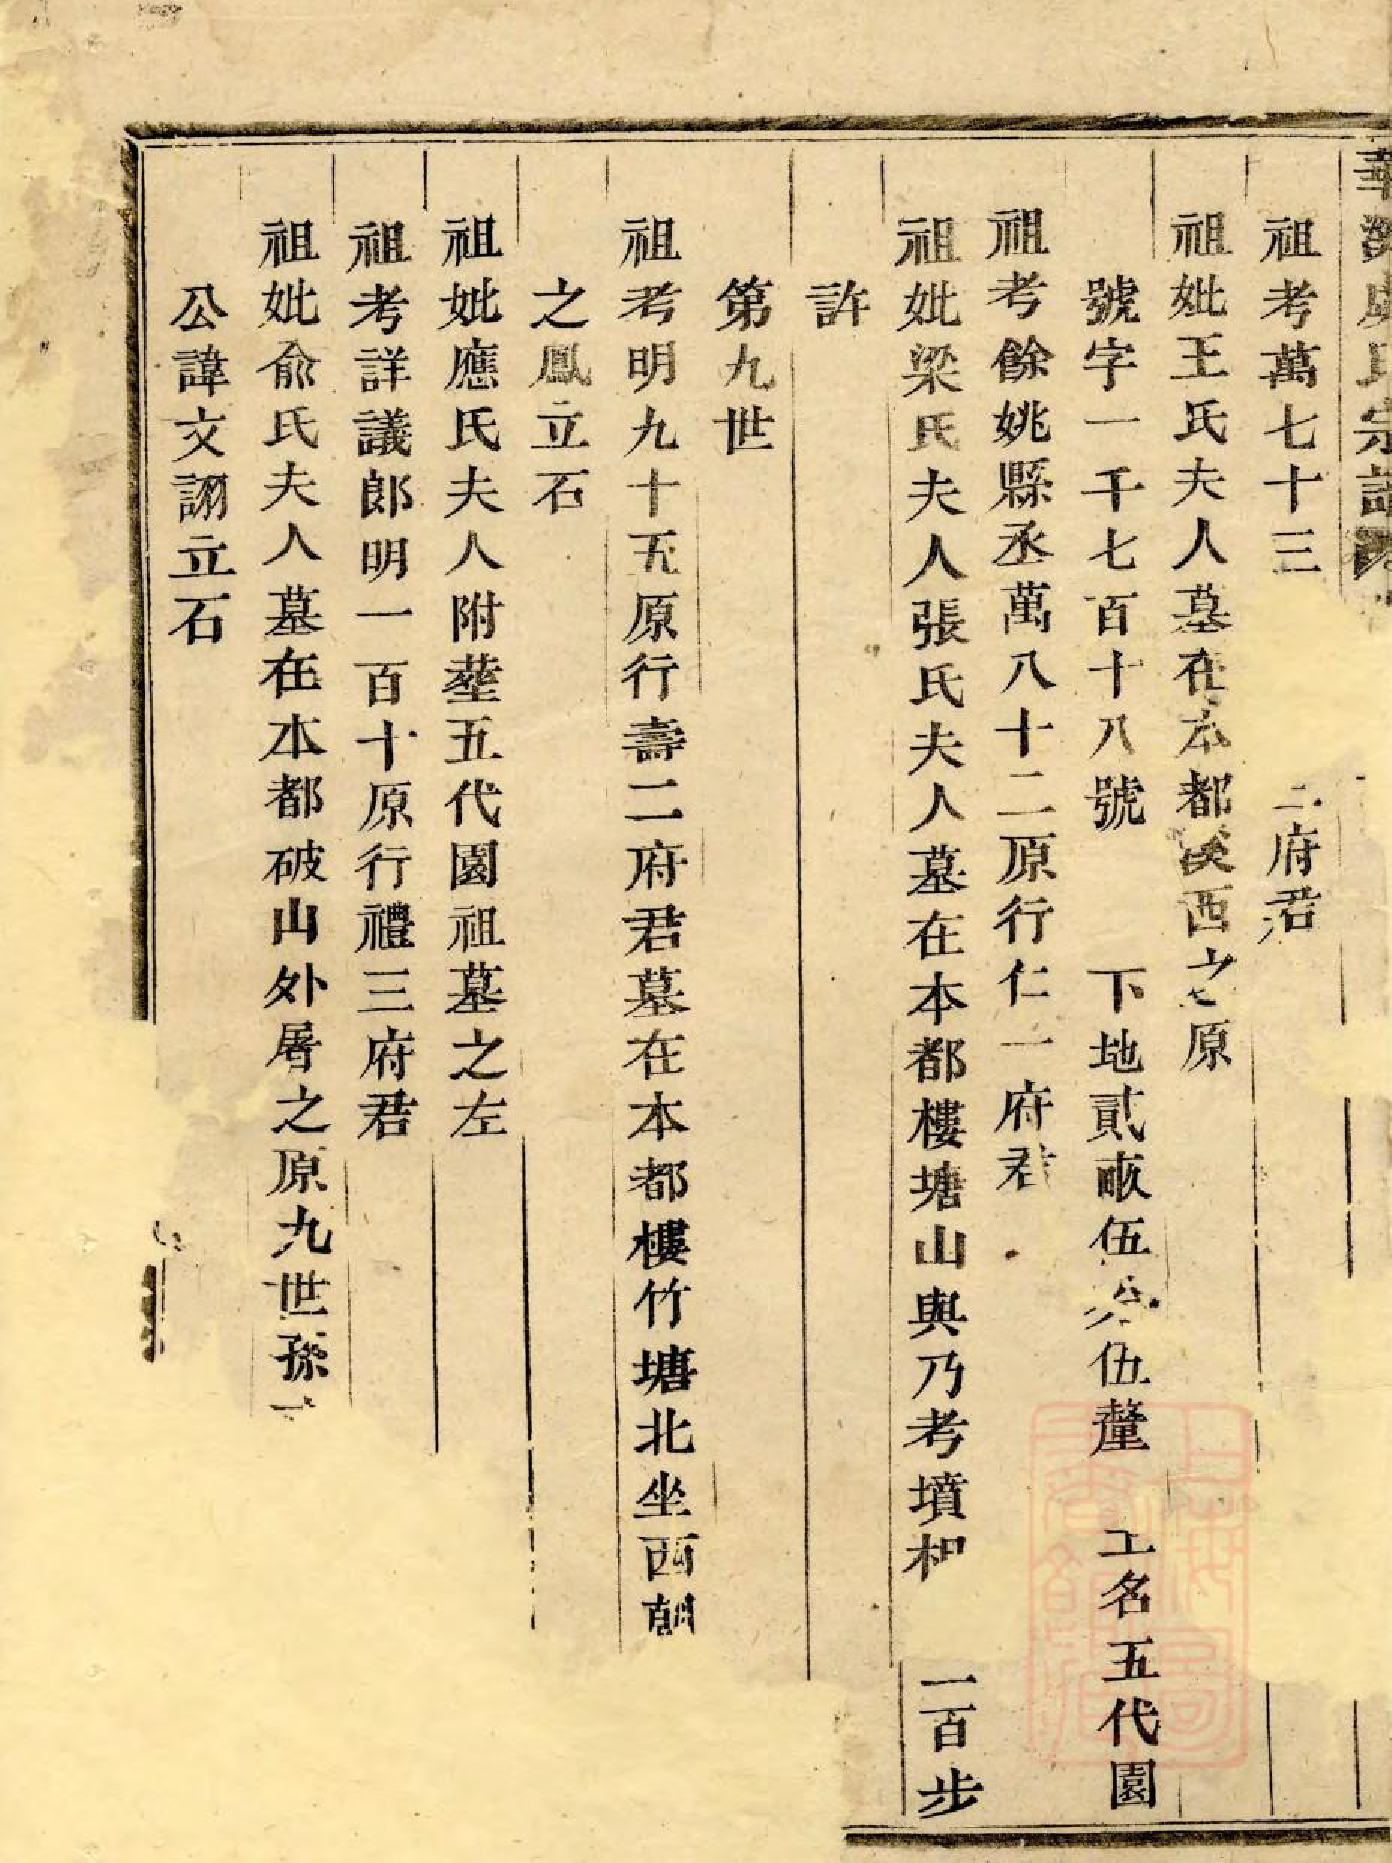 華溪虞氏宗譜
祖考萬七十三二府君
祖妣王氏夫人墓在本都溪西之原
號字一千七百十八號 下地貳畝伍分伍釐 土名五代園
祖考餘姚縣丞萬八十二原行仁一府君
祖妣梁氏夫人張氏夫人墓在本都樓塘山與乃考墳相一百步
許
第九世
祖考明九十五原行壽二府君墓在本都樓竹塘北坐西朝
之鳳立石
祖妣應氏夫人附塟五代園祖墓之左
祖考詳議郎明一百十原行禮三府君
祖妣俞氏夫人墓在本都破山外屠之原九世孫
公諱文詡立石